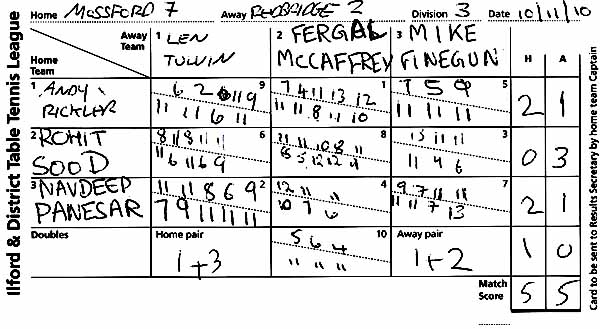 Ilford & District Table Tennis League
Home MOSSFORD 7 Away REDBRIDGE 2 Division 3 Date 10/11/10
Away Team 1 LEN 2 FERGAL 3 MIKE H A
Home Team TULWIN MCCAFFREY FINEGUN
1 ANDY 6 2 11 9 9 7 4 11 13 12 1 7 5 9 5
RICKLER 11 11 6 11 11 11 8 11 10 11 11 11 2 1
2 ROHIT 8 11 8 11 11 6 11 11 10 8 11 8 13 11 11 3
SOOD 11 6 11 6 9 8 5 12 12 11 4 6 0 3
3 NAVDEEP 11 11 8 6 9 2 12 11 11 4 9 7 11 11 7
PANESAR 7 9 11 11 11 10 7 6 11 11 7 13 2 1
Doubles Home pair 5 6 4 10 Away pair
1+3 11 11 11 1+2 1 0
Match Score 5 5
Card to be sent to Results Secretary by home team Captain